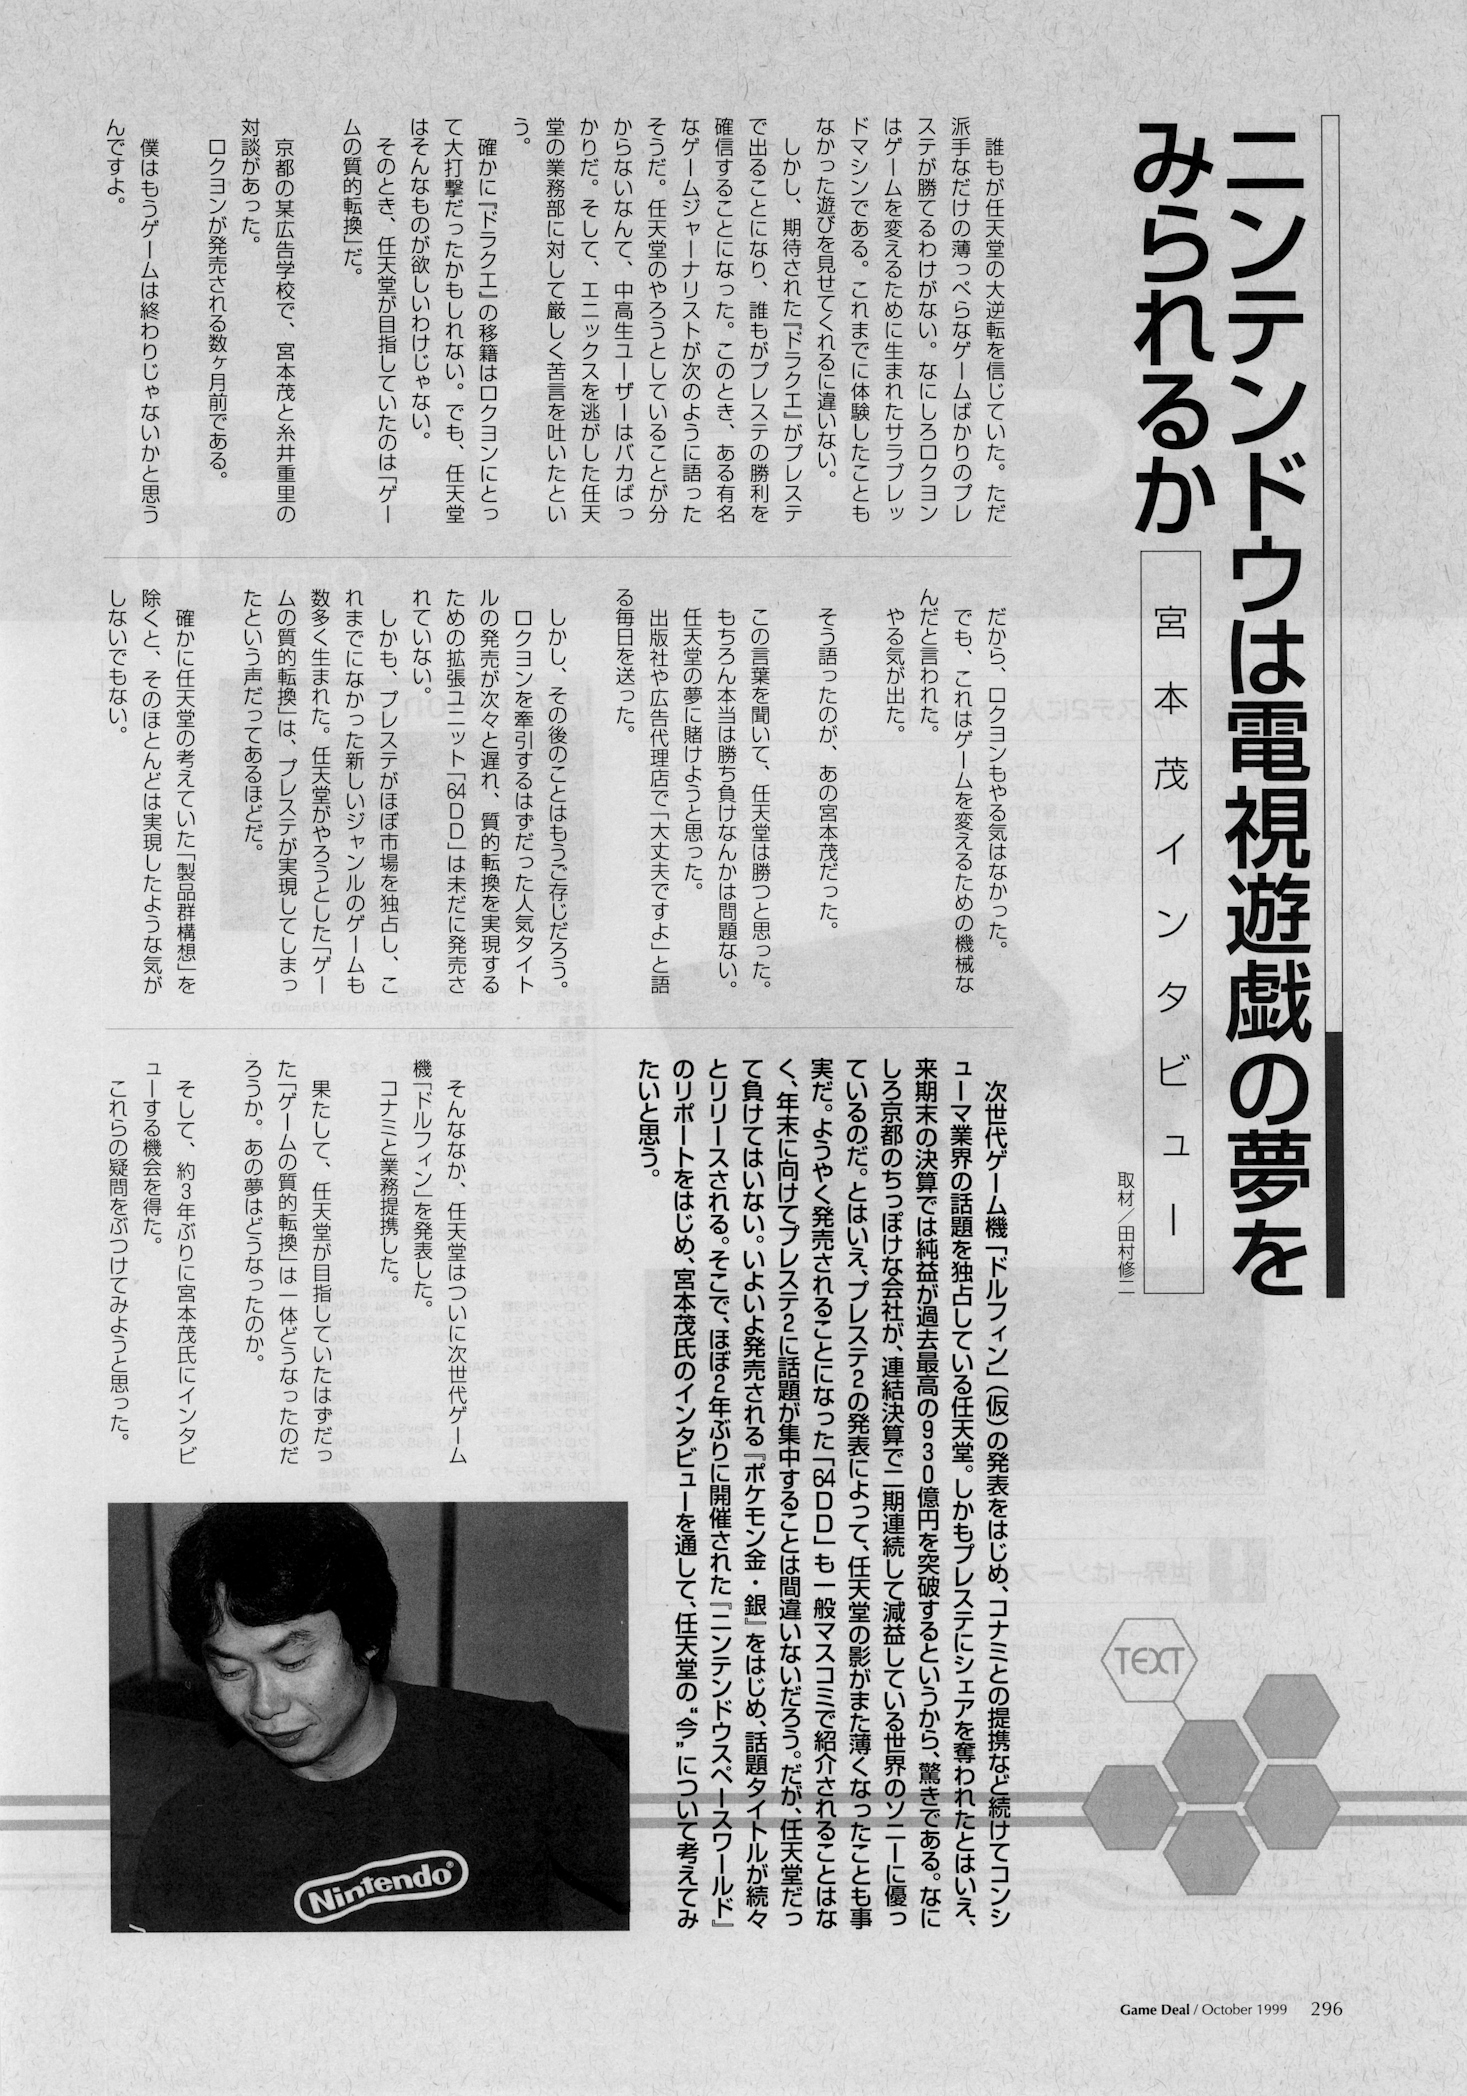 ニンテンドウは電視遊戯の夢を
みられるか
宮本茂インタビュー
取材／田村修二
誰もが任天堂の大逆転を信じていた。ただ
派手なだけの薄っぺらなゲームばかりのプレ
ステが勝てるわけがない。なにしろロクヨン
はゲームを変えるために生まれたサラブレッ
ドマシンである。これまでに体験したことも
なかった遊びを見せてくれるに違いない。
しかし、期待された『ドラクエ』がプレステ
で出ることになり、誰もがプレステの勝利を
確信することになった。このとき、ある有名
なゲームジャーナリストが次のように語った
そうだ。任天堂のやろうとしていることが分
からないなんて、中高生ユーザーはバカばっ
かりだ。そして、エニックスを逃がした任天
堂の業務部に対して厳しく苦言を吐いたとい
う。
確かに『ドラクエ』の移籍はロクヨンにとっ
て大打撃だったかもしれない。でも、任天堂
はそんなものが欲しいわけじゃない。
そのとき、任天堂が目指していたのは「ゲー
ムの質的転換」だ。
京都の某広告学校で、宮本茂と糸井重里の
対談があった。
ロクヨンが発売される数ヶ月前である。
僕はもうゲームは終わりじゃないかと思う
んですよ。
だから、ロクヨンもやる気はなかった。
でも、これはゲームを変えるための機械な
んだと言われた。
やる気が出た。
そう語ったのが、あの宮本茂だった。
この言葉を聞いて、任天堂は勝つと思った。
もちろん本当は勝ち負けなんかは問題ない。
任天堂の夢に賭けようと思った。
出版社や広告代理店で「大丈夫ですよ」と語
る毎日を送った。
しかし、その後のことはもうご存じだろう。
ロクヨンを牽引するはずだった人気タイト
ルの発売が次々と遅れ、質的転換を実現する
ための拡張ユニット「64DD」は未だに発売さ
れていない。
しかも、プレステがほぼ市場を独占し、こ
れまでになかった新しいジャンルのゲームも
数多く生まれた。任天堂がやろうとした「ゲー
ムの質的転換」は、プレステが実現してしまっ
たという声だってあるほどだ。
確かに任天堂の考えていた「製品群構想」を
除くと、そのほとんどは実現したような気が
しないでもない。
次世代ゲーム機「ドルフィン」（仮）の発表をはじめ、コナミとの提携など続けてコンシ
ューマ業界の話題を独占している任天堂。しかもプレステにシェアを奪われたとはいえ、
来期末の決算では純益が過去最高の930億円を突破するというから、驚きである。なに
しろ京都のちっぽけな会社が、連結決算で二期連続して減益している世界のソニーに優っ
ているのだ。とはいえ、プレステ2の発表によって、任天堂の影がまた薄くなったことも事
実だ。ようやく発売されることになった「64DD」も一般マスコミで紹介されることはな
く、年末に向けてプレステ2に話題が集中することは間違いないだろう。だが、任天堂だっ
て負けてはいない。いよいよ発売される『ポケモン金・銀』をはじめ、話題タイトルが続々
とリリースされる。そこで、ほぼ2年ぶりに開催された『ニンテンドウスペースワールド』
のリポートをはじめ、宮本茂氏のインタビューを通して、任天堂の“今”について考えてみ
たいと思う。
そんななか、任天堂はついに次世代ゲーム
機「ドルフィン」を発表した。
コナミと業務提携した。
果たして、任天堂が目指していたはずだっ
た「ゲームの質的転換」は一体どうなったのだ
ろうか。あの夢はどうなったのか。
そして、約3年ぶりに宮本茂氏にインタビ
ューする機会を得た。
これらの疑問をぶつけてみようと思った。
TEXT
Nintendo®
Game Deal / October 1999 296